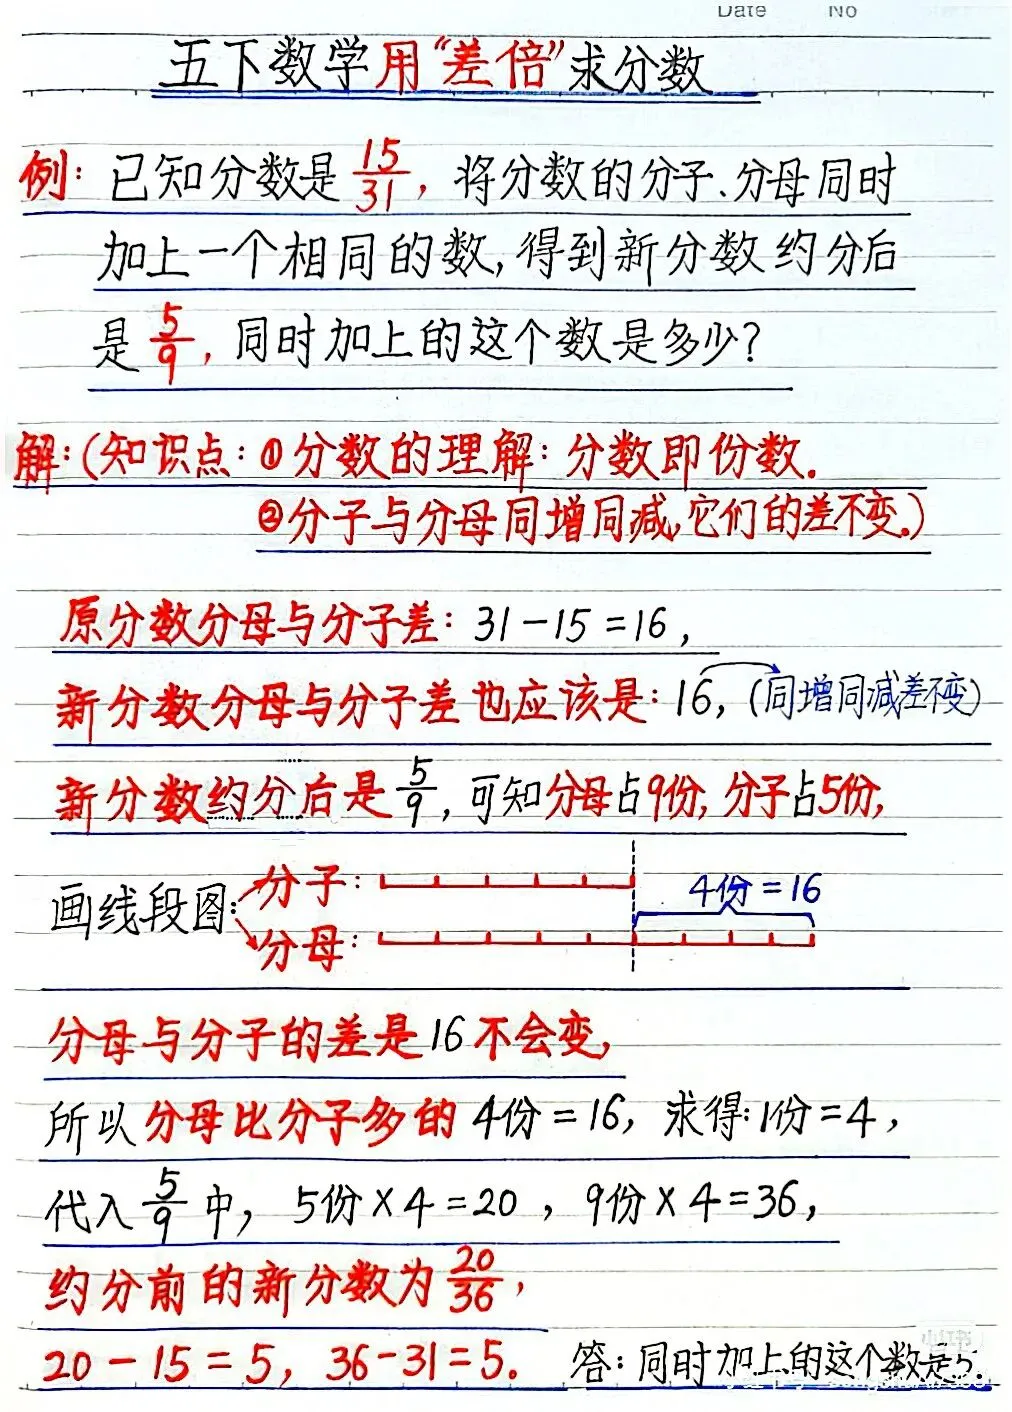 Date No
五下数学用“差倍”求分数
例：已知分数是15/31，将分数的分子、分母同时
加上一个相同的数，得到新分数约分后
是5/9，同时加上的这个数是多少？
解：(知识点：①分数的理解：分数即份数.
②分子与分母同增同减,它们的差不变.)
原分数分母与分子差：31-15=16，
新分数分母与分子差也应该是：16，(同增同减差不变)
新分数约分后是5/9，可知分母占9份，分子占5份，
画线段图：分子：
4份=16
分母：
分母与分子的差是16不会变，
所以分母比分子多的4份=16，求得：1份=4，
代入5/9中，5份×4=20，9份×4=36，
约分前的新分数为20/36，
20-15=5，36-31=5。 答：同时加上的这个数是5.
小红书